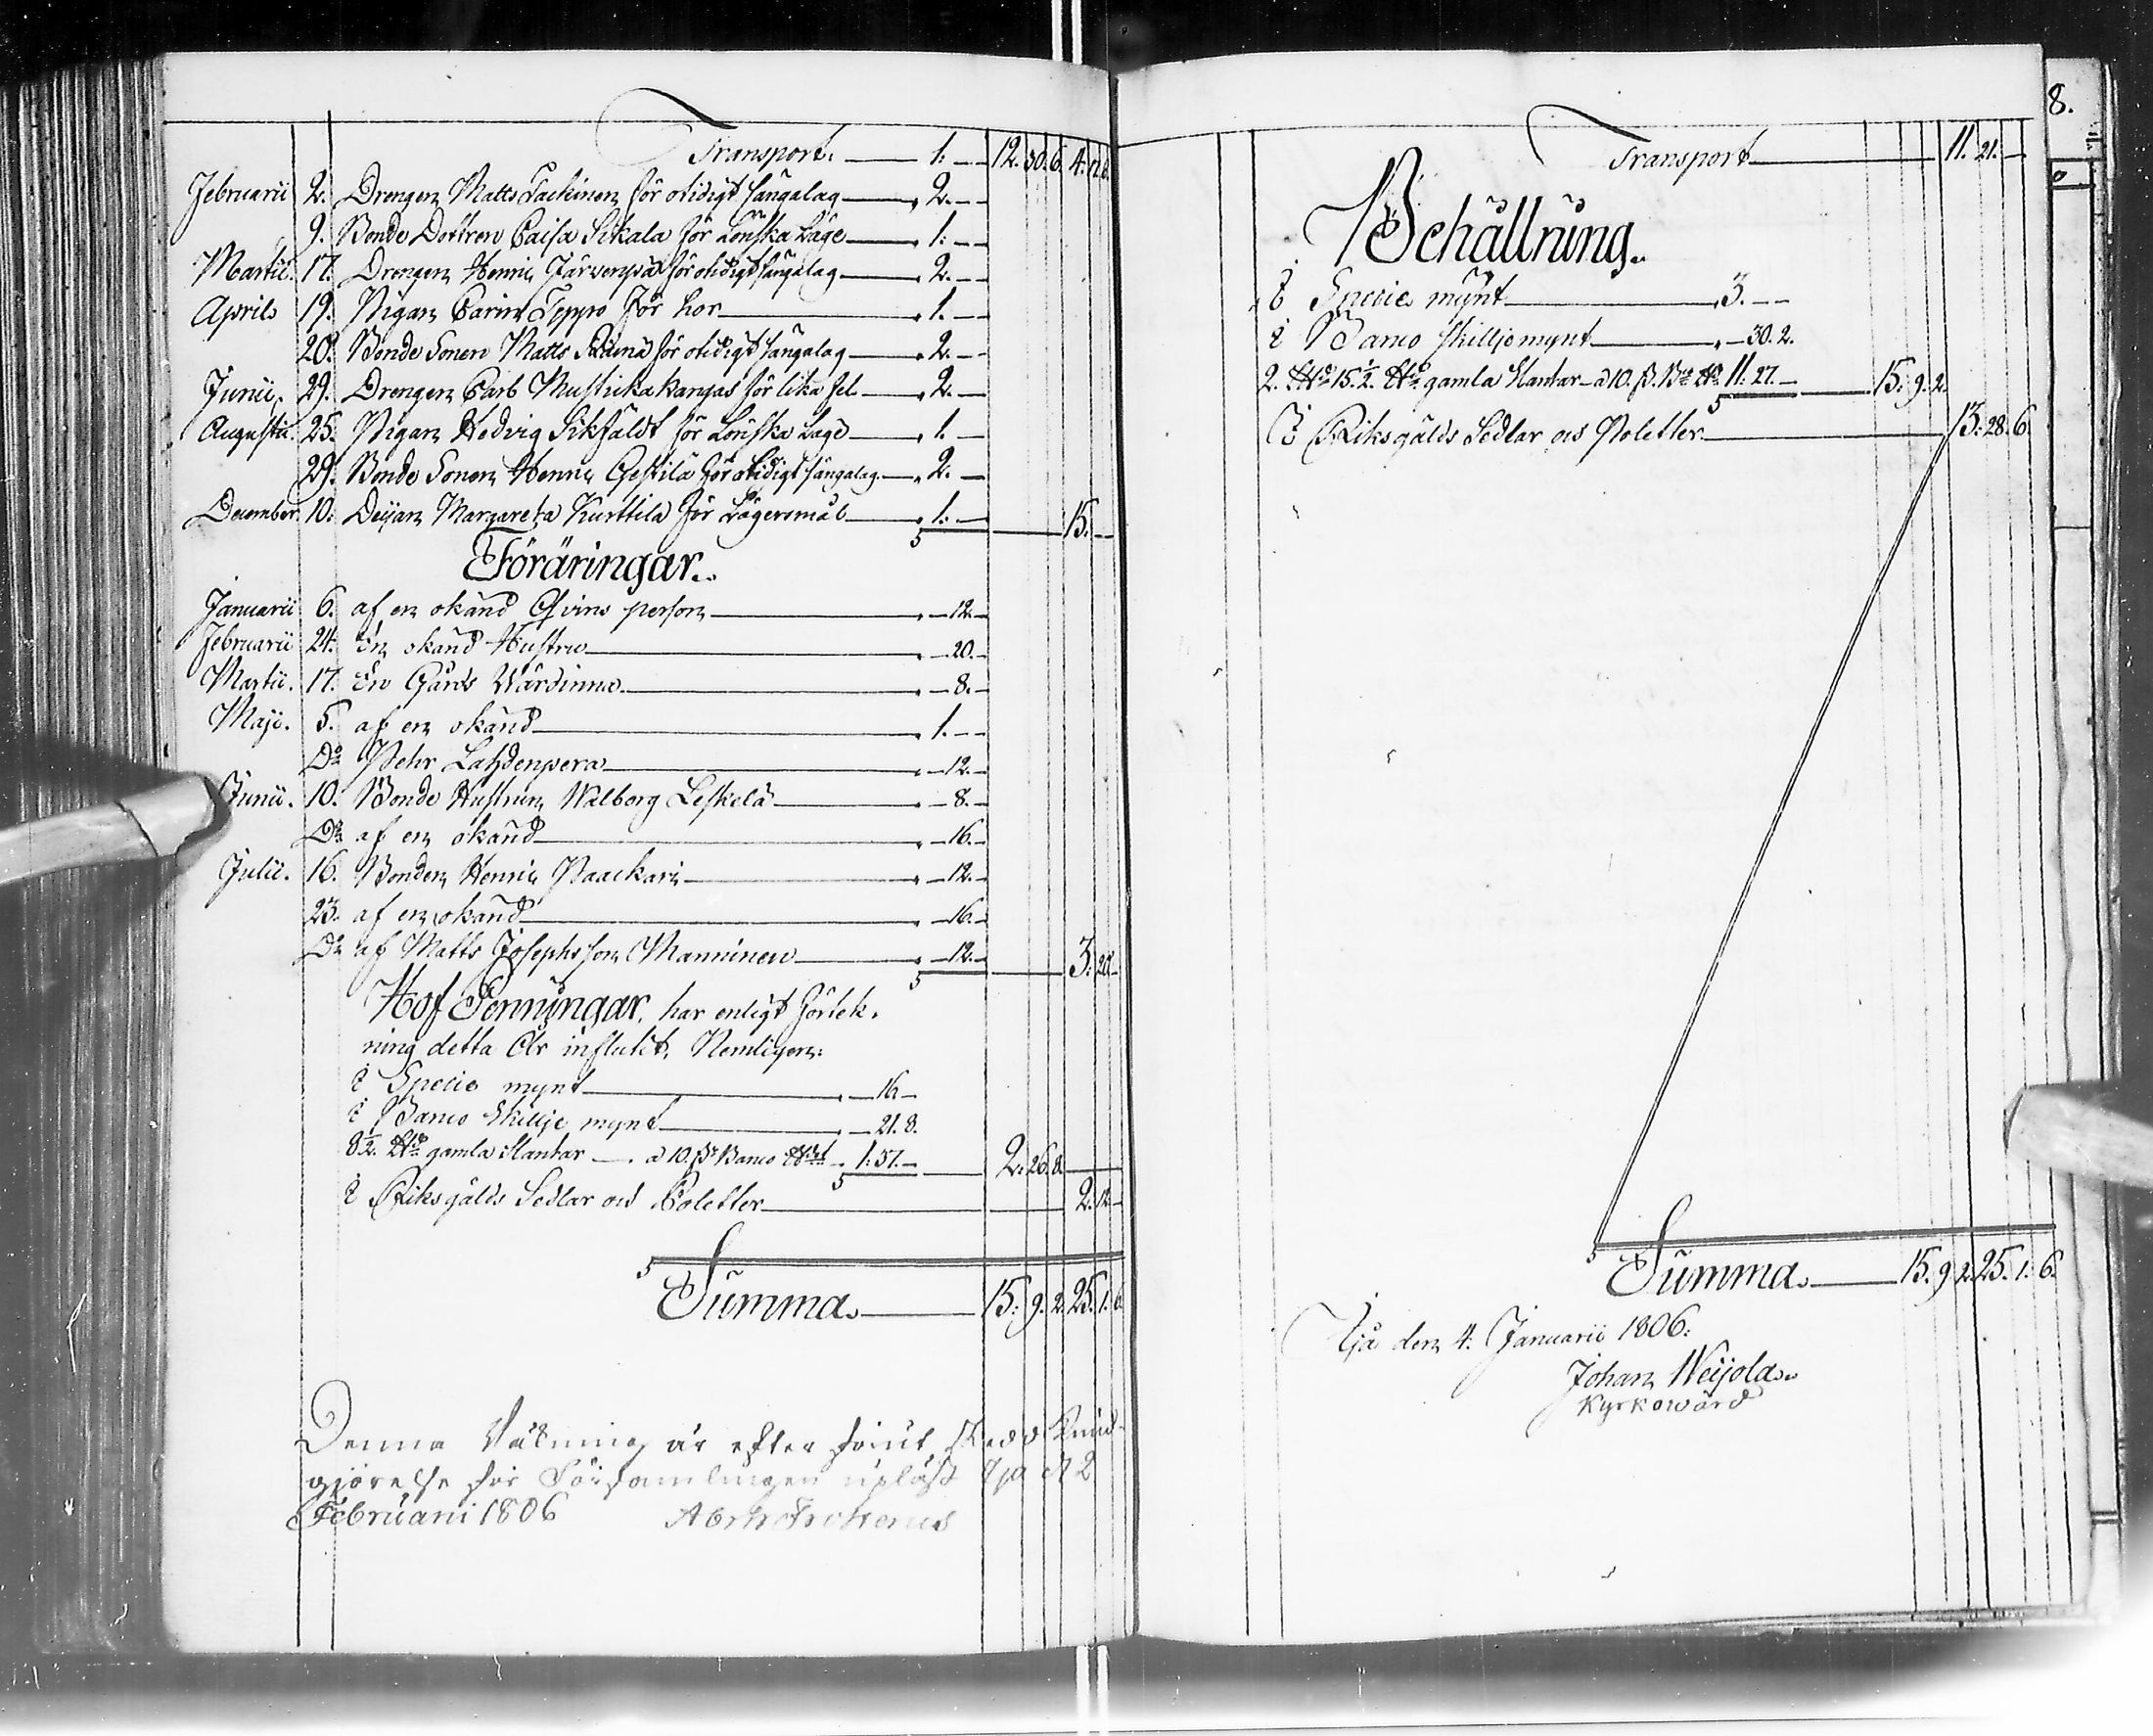 Transport. 1. — 12. 30. 6. 4. 17. 6.
Februarii 2. Drengen Matts Tackinen för otidigt sängalag 2. —
9. Bonde Dottren Caisa Sikala för Lönska Läge 1. —
Martii. 17. Drengen Henric Järvenpää för otidigt sängalag 2. —
Aprils 19. Pigan Carin Seppo för hor 1. —
20. Bonde Sonen Matts för otidigt sängalag 2. —
Junii. 29. Drengen Carl Mustickakangas för lika fel 2. —
Augustii. 25. Pigan Hedvig Sikfäldt för Lönska Läge 1. —
29. Bonde Sonen Henric Gestilä för otidigt sängalag 2. —
December. 10. Deijan Margareta Kurttila för Lägersmål 1. — 15. —
Föräringar.
Januarii 6. af en okänd Qvins person — 12. —
Februarii 24. En okänd Hustru — 20. —
Martii. 17. En Gårds Värdinna — 8. —
Maji. 5. af en okänd 1. — —
Do Pehr Lahdenpera — 12. —
Junii. 10. Bonde Hustrun Walborg Leskelä — 8. —
Do af en okänd — 16. —
Julii. 16. Bonden Henric Paackari — 12. —
23. af en okänd — 16. —
Do af Matts Josephsson Manninen — 12. — 3. 20. —
Hof Penningar, har enligt förtek-
ning detta År influtit, Nemligen:
i Specie mynt — 16 —
i Banco Skillje mynt — 21. 8.
8½. gamla Slantar — a 10. ß Banco 1: 37. — 2. 26. 8.
i Riksgälds Sedlar och Poletter 2. 12. —
Summa. 15. 9. 2. 25. 1. 6.
Denna Räkning är efter förut skedd Kund-
gjörelse för Församlingen upläst Ijo d 2
Februarii 1806
8.
Transport 11. 21. —
Behållning.
i Specie mynt 3. — —
i Banco skilljemynt — 30. 2.
2. 15.½. gamla Slantar a 10. ß. Bco 11. 27. — 15. 9. 2.
i Riksgälds Sedlar och Poletter 13. 28. 6.
Summa. 15. 9. 2. 25. 1. 6.
Ijo den 4. Januarii 1806.
Johan Weijola.
Kyrkowärd